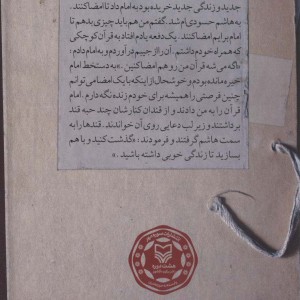 جدید و زندگی جدید خریده بود به امام داد تا امضا کنند.
به هاشم حسودی‌ام شد. گفتم من هم باید چیزی بدهم تا
امام برایم امضا کنند. یک دفعه یادم افتاد به قرآن کوچکی
که همراه خودم داشتم. آن را از جیبم درآوردم و به امام دادم:
«اگه می‌شه قرآن من رو هم امضا کنین.» به دستخط امام
خیره مانده بودم و خوشحال از اینکه با یک امضا می‌توانم
چنین فرصتی را همیشه برای خودم زنده نگه دارم. امام
قرآن را به من دادند و از قندان کنارشان چند حبه قند
برداشتند و زیر لب دعایی روی آن خواندند. قندها را به
سمت هاشم گرفتند و فرمودند: «گذشت کنید و با هم
بسازید تا زندگی خوبی داشته باشید.»